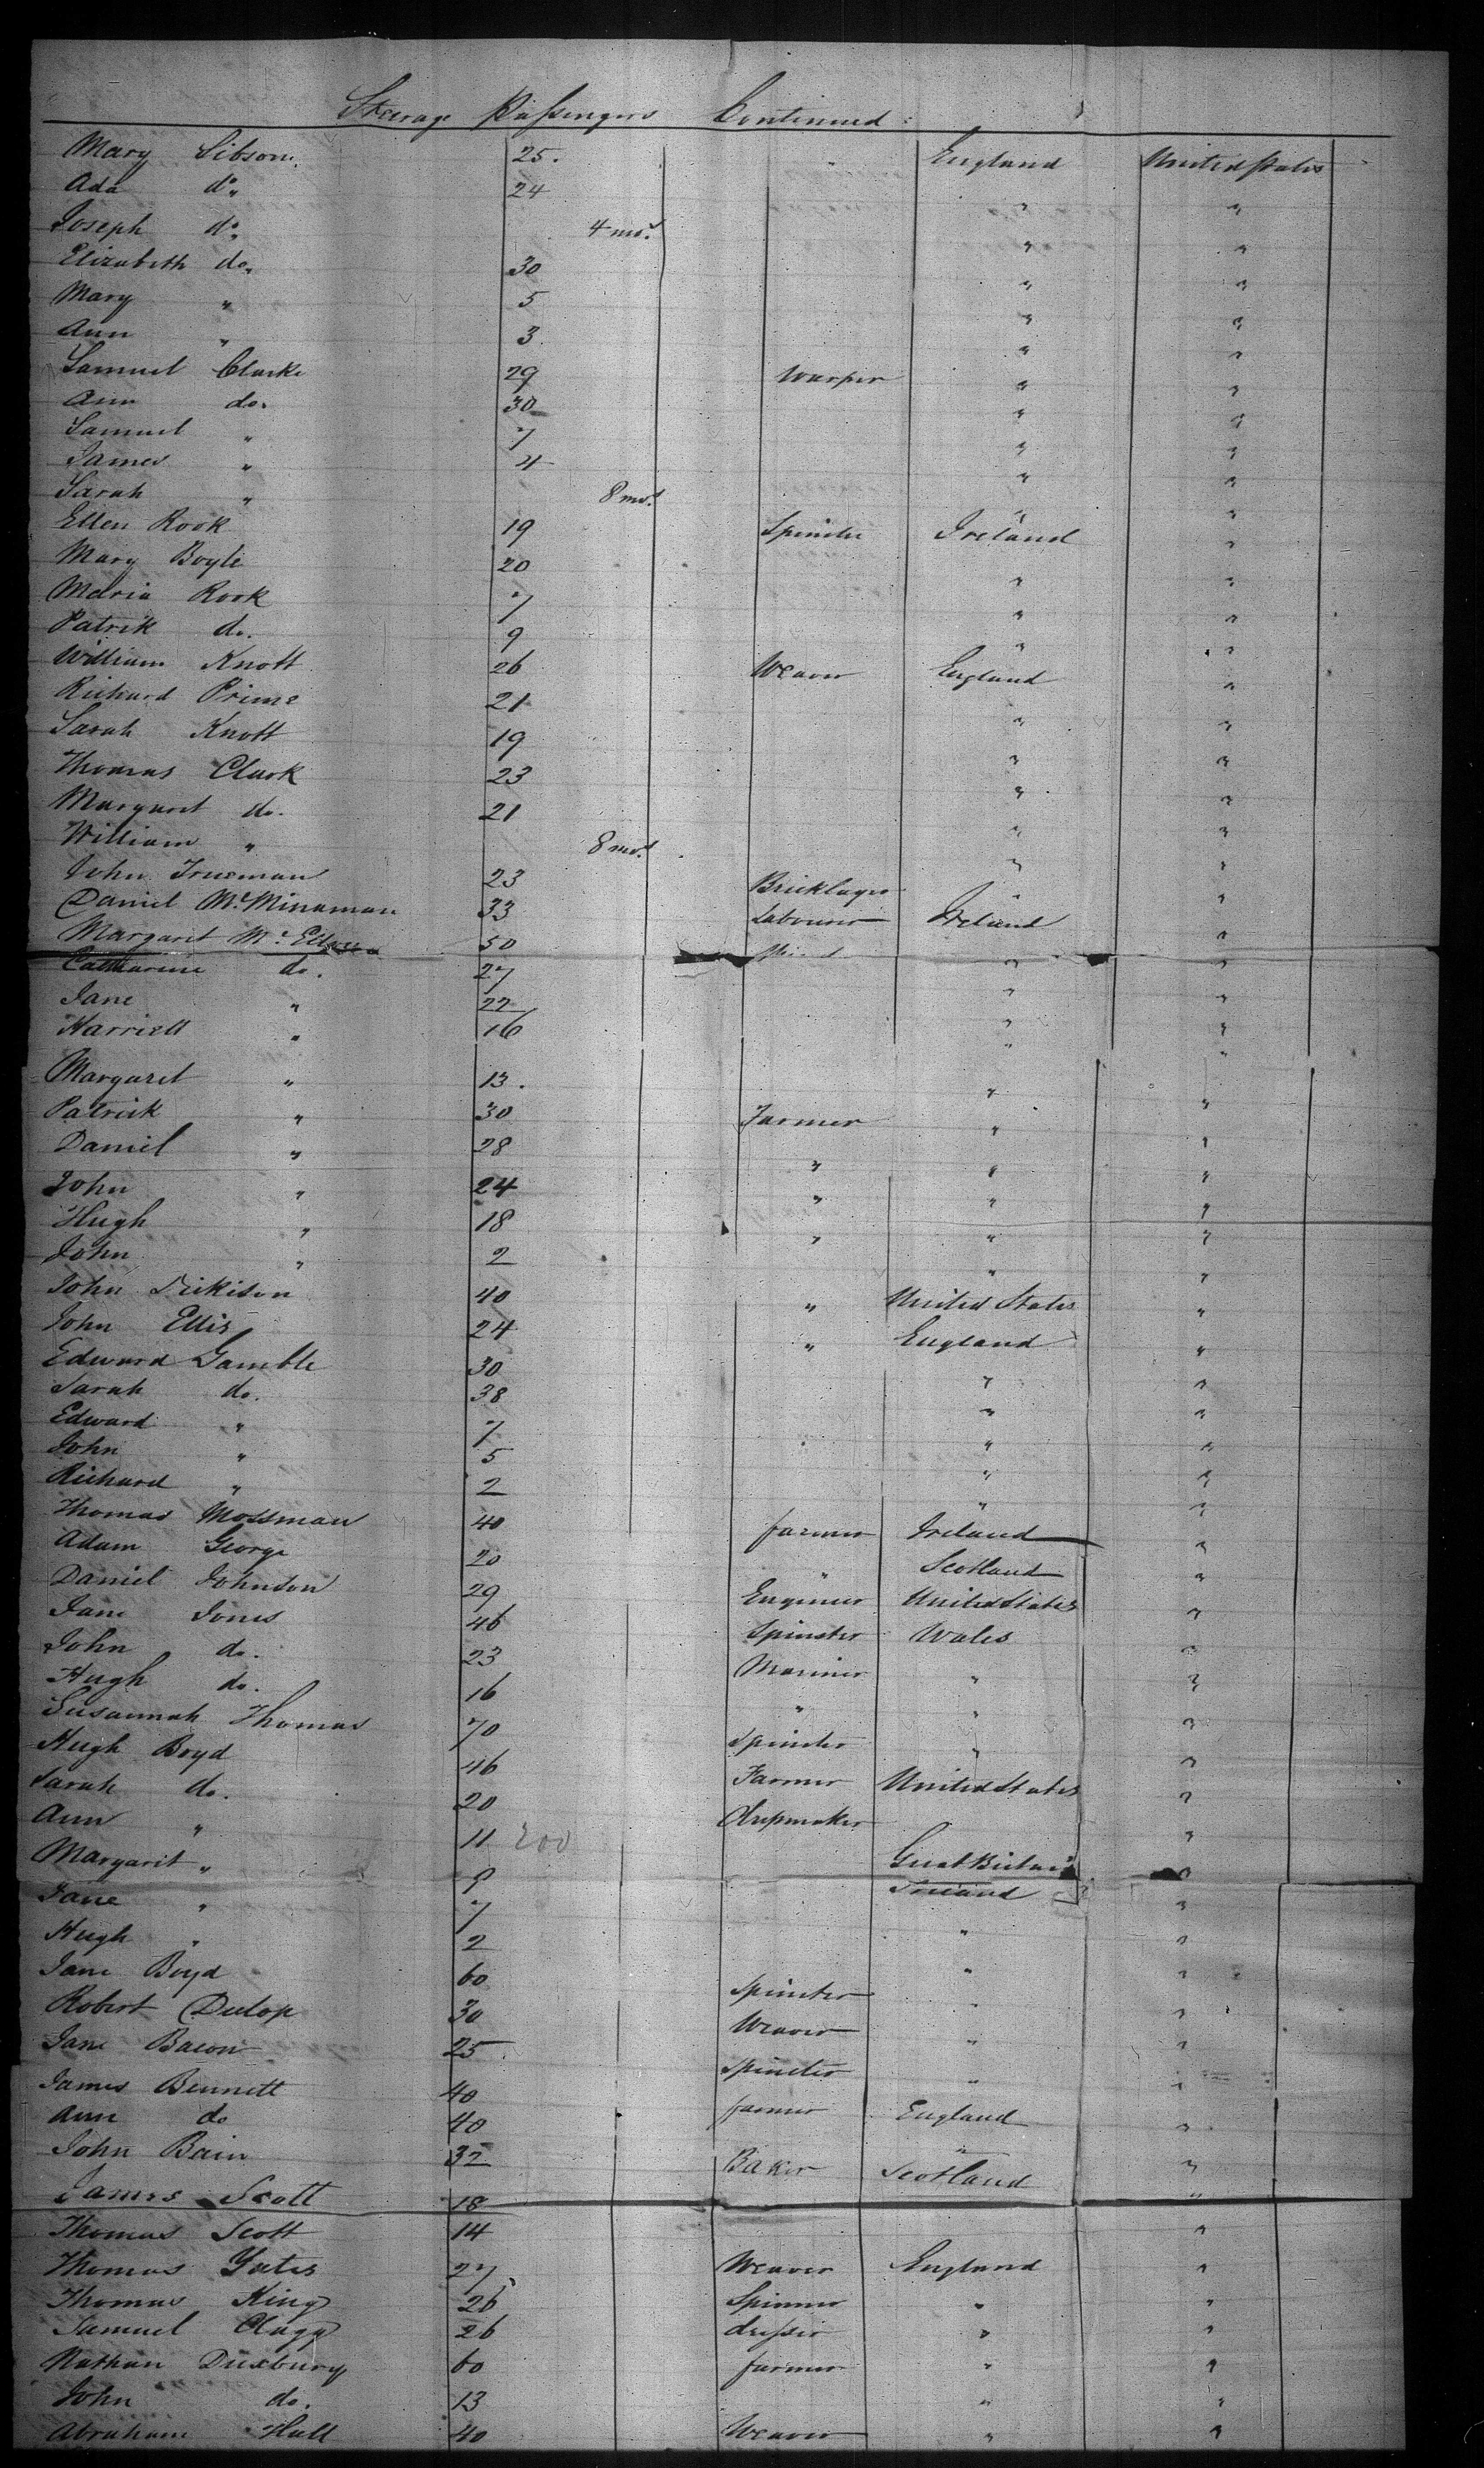 Steerage Passengers Continued
Mary Sibson 25. " England United States
Ada do " 24 " "
Joseph do " 4 mos. " "
Elizabeth do " 30 " "
Mary " 5 " "
Ann " 3 " "
Samuel Clarke 29 Warper " "
Ann do. 30 " "
Samuel " 7 " "
James " 4 " "
Sarah " 8 mos. " "
Ellen Rook 19 Spinster Ireland "
Mary Boyle 20 " "
Maria Rook 7 " "
Patrik do. 9 " "
William Knott 26 Weaver England "
Richard Prime 21 " "
Sarah Knott 19 " "
Thomas Clark 23 " "
Margaret do. 21 " "
William " 8 mos. " "
John Trueman 23 Bricklayer " "
Daniel McMinaman 33 Labourer Ireland "
Margaret Mc 50 " "
Catharine do. 27 " "
Jane " 22 " "
Harriett " 16 " "
Margaret " 13. " "
Patrick " 30 Farmer " "
Daniel " 28 " " "
John " 24 " " "
Hugh " 18 " " "
John " 2 " "
John Dickison 40 " United States "
John Ellis 24 " England "
Edward Gamble 30 " "
Sarah do. 38 " "
Edward " 7 " "
John " 5 " "
Richard " 2 " "
Thomas Mossman 40 farmer Ireland "
Adam George 20 " Scotland "
Daniel Johnson 29 Engineer United States "
Jane Jones 46 Spinster Wales "
John do. 23 Mariner " "
Hugh do. 16 " " "
Susannah Thomas 70 Spinster " "
Hugh Boyd 46 Farmer United States "
Sarah do. 20 "
Ann " 11 200 Great Britain "
Margarit " 9 Ireland "
Jane " 7 " "
Hugh " 2 " "
Jane Boyd 60 Spinster " "
Robert Dulop 30 Weaver " "
Jane Bacon 25 Spinster " "
James Bennett 40 farmer England "
Ann do 40 " "
John Bain 32 Baker Scotland "
James Scott 18
Thomas Scott 14 "
Thomas Yates 27 Weaver England "
Thomas King 26 Spinner " "
Samuel Clagg 26 dresser " "
Nathan Duxbury 60 farmer " "
John do. 13 " "
Abraham Hall 40 Weaver " "